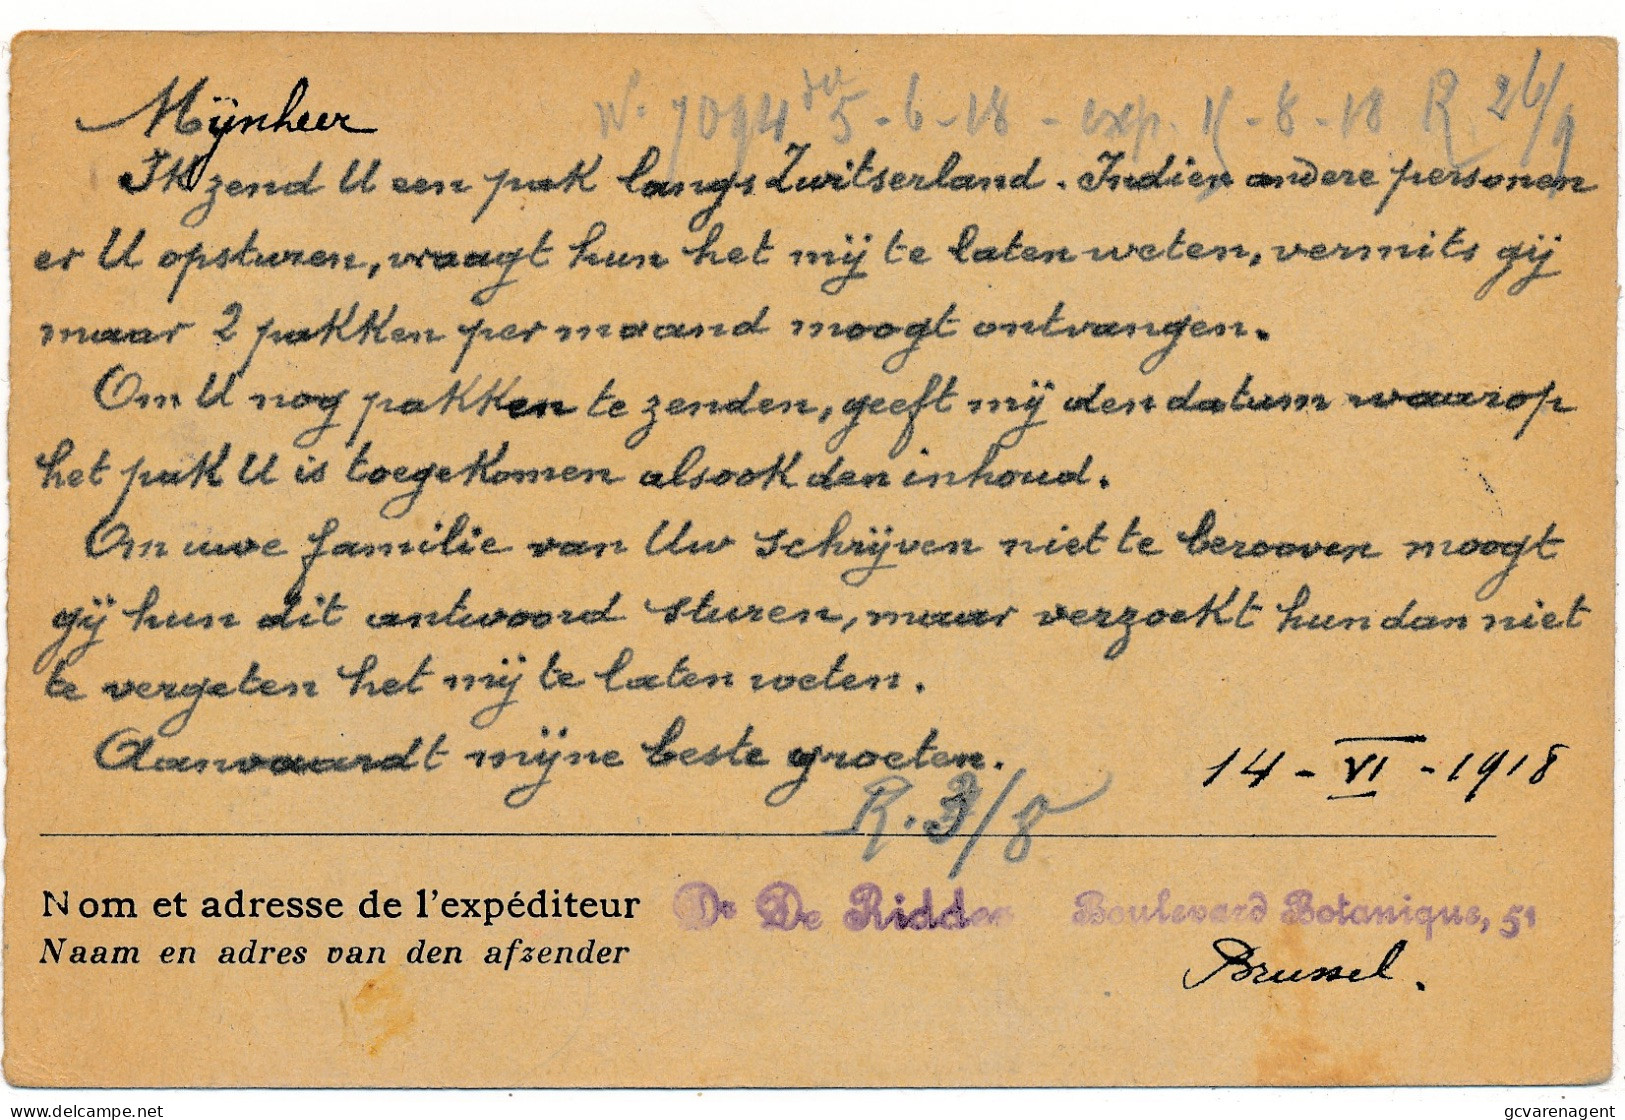 Mijnheer
N. 7094 du 5-6-18 - exp. 1-8-18 R 26/9
Ik zend U een pak langs Zwitserland. Indien andere personen
er U opsturen, vraagt hun het mij te laten weten, vermits gij
maar 2 pakken per maand moogt ontvangen.
Om U nog pakken te zenden, geeft mij den datum waarop
het pak U is toegekomen alsook den inhoud.
Om uwe familie van Uw schrijven niet te berooven moogt
gij hun dit antwoord sturen, maar verzoekt hun dan niet
te vergeten het mij te laten weten.
Aanvaardt mijne beste groeten.
14 - VI - 1918
R. 3/8
Nom et adresse de l'expéditeur Dr De Ridder Boulevard Botanique, 51
Naam en adres van den afzender
Brussel.
gcvarenagent
delcampe.net